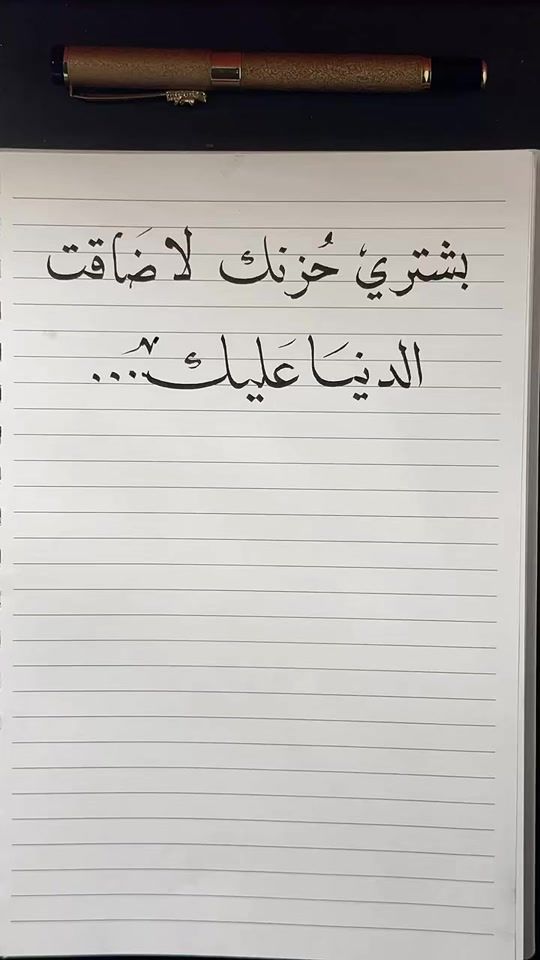 بشتري حُزنك لا ضَاقت
الدنيَا عَليك...